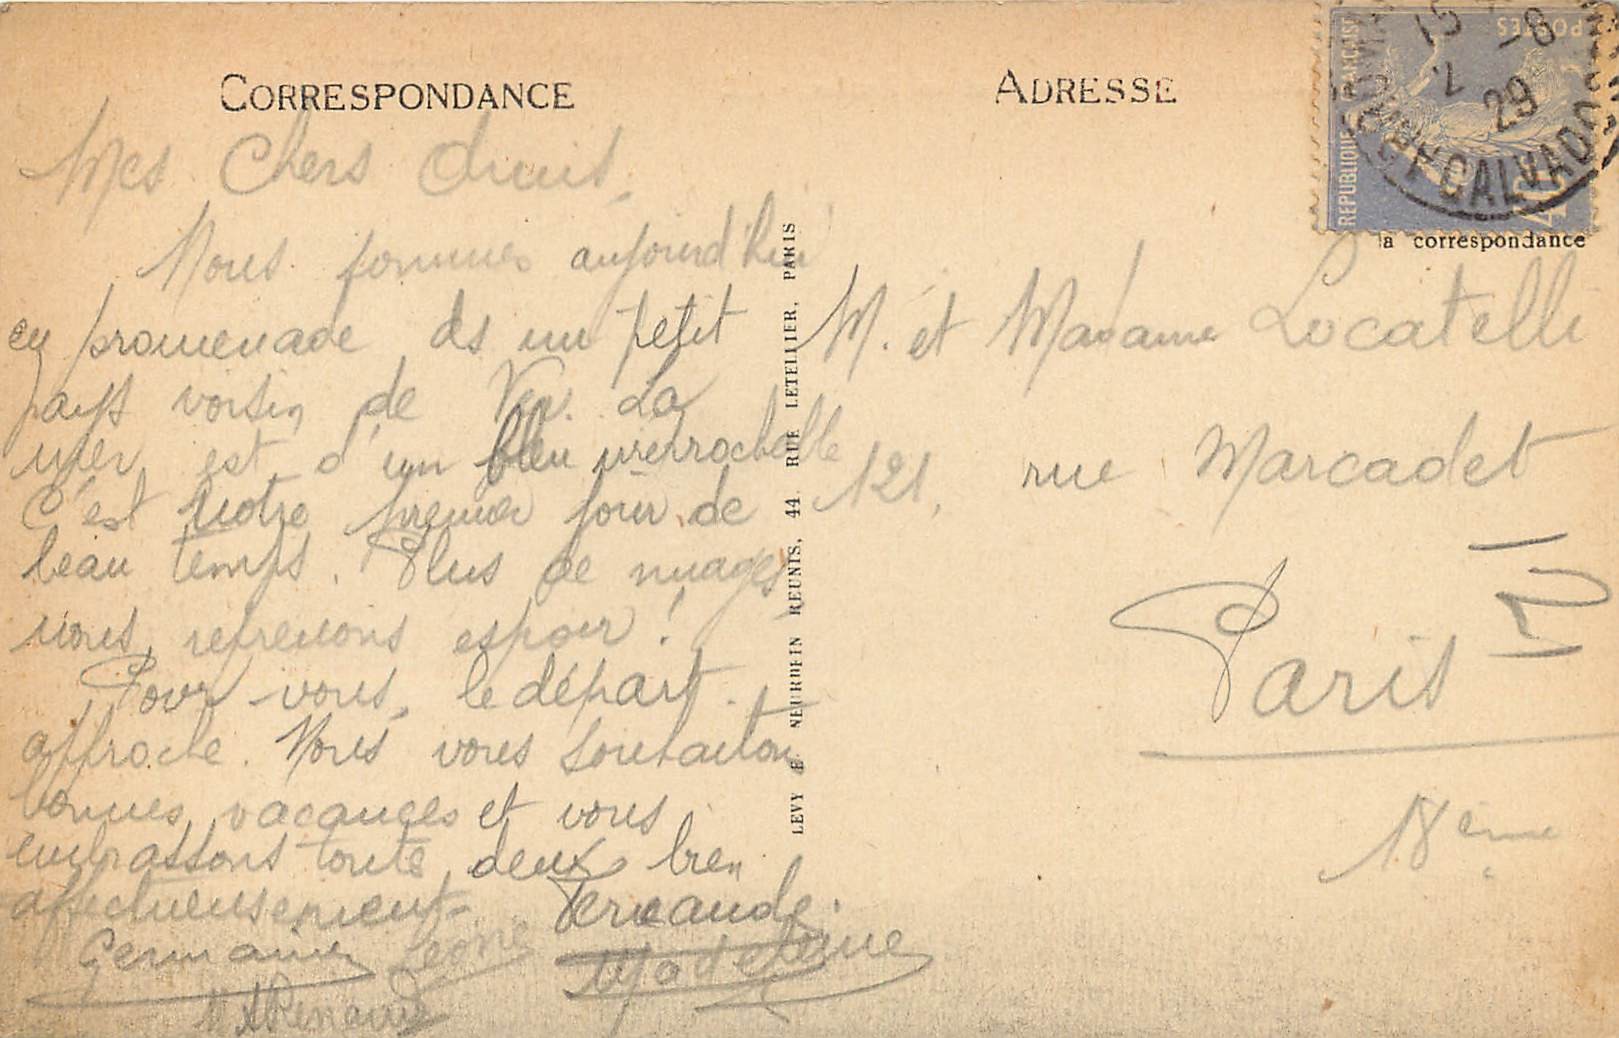 CORRESPONDANCE
Mes Chers Amis,
Nous sommes aujourd'hui
en promenade ds un petit
pays voisin de Ver. La
mer est d'un bleu
C'est notre premier jour de
beau temps. Plus de nuages
nous reprenons espoir!
Pour vous, le départ
approche. Nous vous souhaitons
bonnes vacances et vous
embrassons toute deux bien
affectueusement
Fernande.
Germaine Léone Madeleine
LEVY & NEURDEIN REUNIS, 44, RUE LETELLIER, PARIS
ADRESSE
REPUBLIQUE FRANÇAISE
POSTES
40
15
-8
29
CALVADOS
la correspondance
M. et Madame Locatelli
121, rue Marcadet
Paris
18eme